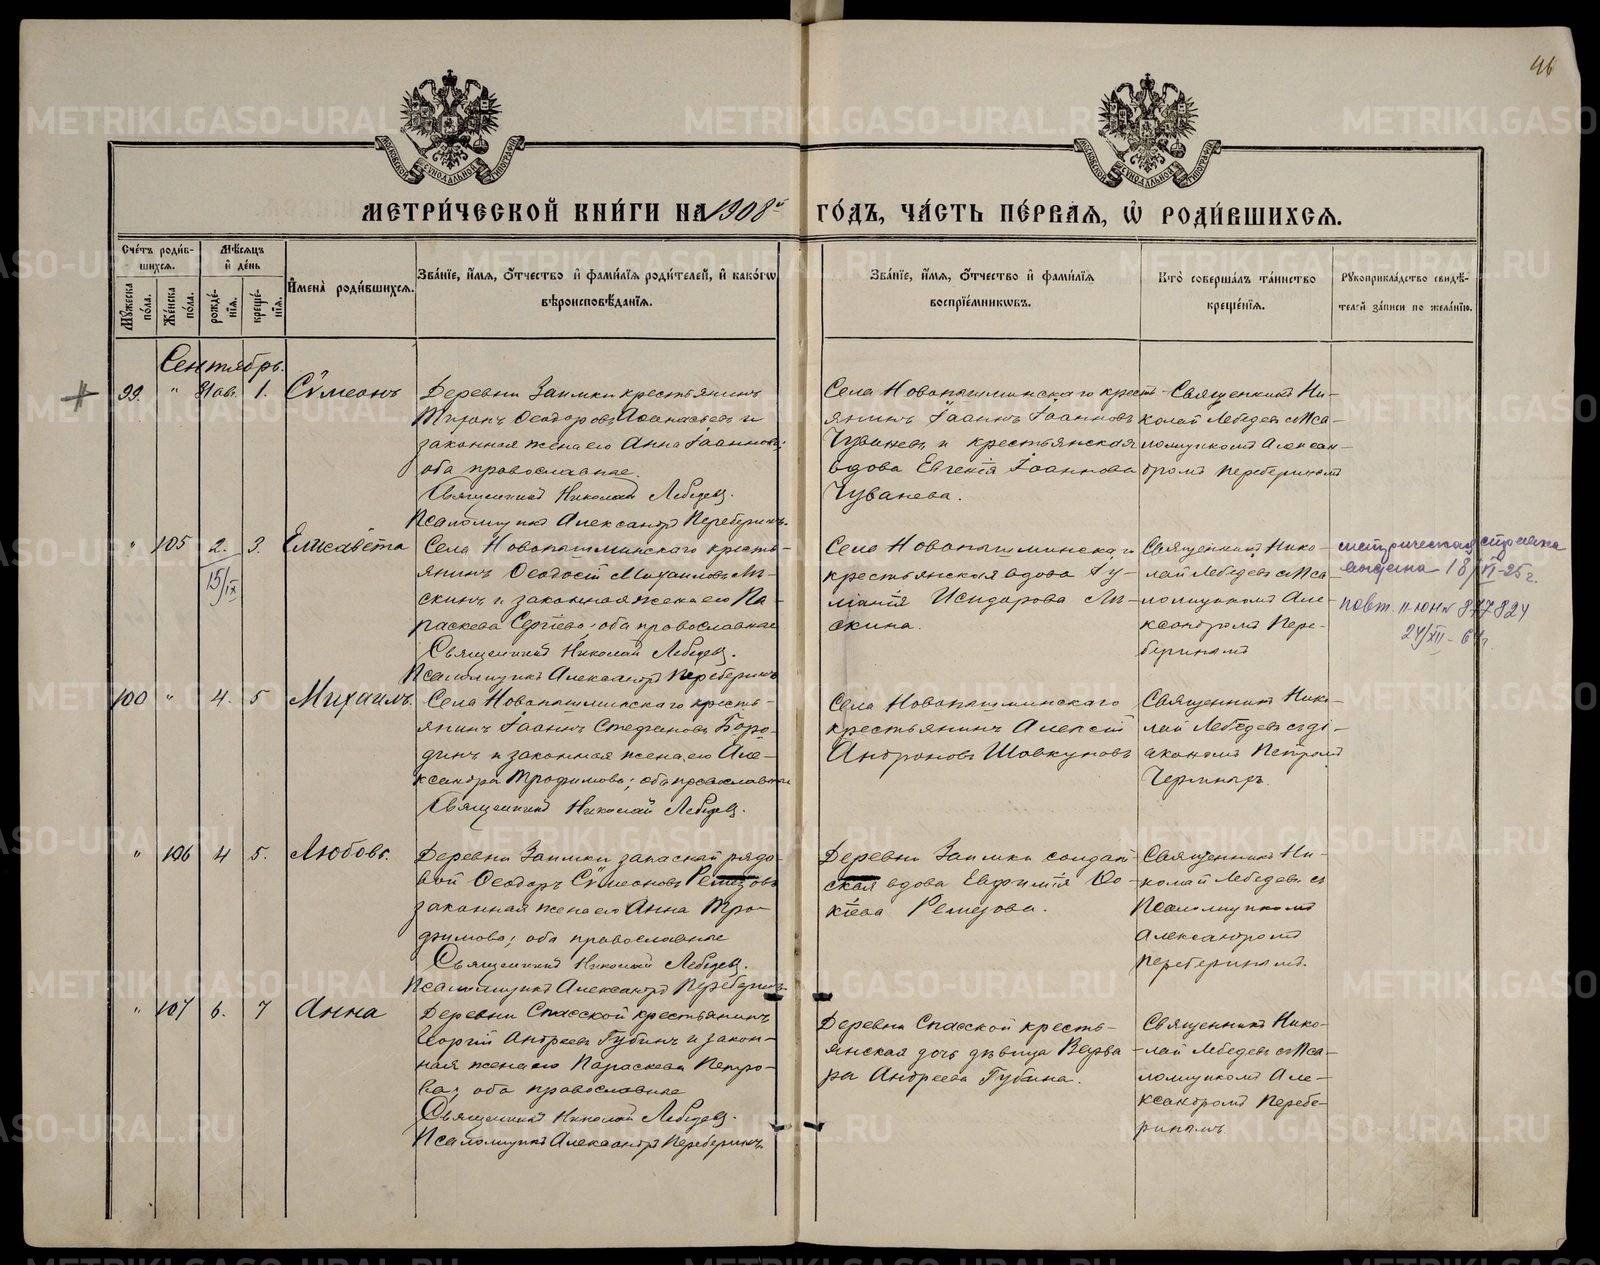 46
МОСКОВСКОЙ СѴНОДАЛЬНОЙ ТИПОГРАФІИ
МОСКОВСКОЙ СѴНОДАЛЬНОЙ ТИПОГРАФІИ
МЕТРИ́ЧЕСКОЙ КНИ́ГИ НА 1908й ГО́ДЪ, ЧА́СТЬ ПЕ́РВАЯ, Ѡ҆ РОДИ́ВШИХСЯ.
Счетъ роди́в-
шихся.
Мꙋжеска по́ла.
Же́нска по́ла.
Мѣ́сяцъ
и҆ де́нь
рожде́-нія.
креще́-нія.
И҆мена̀ роди́вшихся.
Зва́нїе, и҆́мя, ѻ҆́тчество и҆ фами́лїя роди́телей, и҆ како́гѡ
вѣроисповѣ́данїя.
Зва́нїе, и҆́мя, ѻ҆́тчество и҆ фами́лїя
воспрїе́мникѡвъ.
Кто̀ соверша́лъ та́инство
креще́нїя.
Рꙋкоприкла́дство свидѣ́-
телей за́писи по жела́нїю.
Сентябрь.
99. " 31 ав. 1. Сѵмеонъ
Деревни Заимки крестьянинъ
Миронъ Ѳеодоровъ Аѳанасьевъ и
законная жена его Анна Іоаннова;
оба православные.
Священникъ Николай Лебедевъ.
Псаломщикъ Александръ Переберинъ.
Села Новопышминскаго крест-
янинъ Іоаннъ Іоанновъ
Чувашевъ и крестьянская
вдова Евгенія Іоаннова
Чувашева.
Священникъ Ни-
колай Лебедевъ съ Пса-
ломщикомъ Алексан-
дромъ Переберинымъ
" 105 2. 3. Елисавета
15/IX
Села Новопышминскаго кресть-
янинъ Ѳеодосій Михаиловъ Лы-
скинъ и законная жена его Па-
раскева Сергіева; оба православные
Священникъ Николай Лебедевъ.
Псаломщикъ Александръ Переберинъ
Села Новопышминскаго
крестьянская вдова Іу-
ліанія Исидорова Лы-
скина.
Священникъ Нико-
лай Лебедевъ съ Пса-
ломщикомъ Але-
ксандромъ Пере-
беринымъ
18/XI-25 г.
повт. II-ЮН № 877824
24/XII-64 г.
100 " 4. 5 Михаилъ.
Села Новопышминскаго кресть-
янинъ Іоаннъ Стефановъ Боро-
динъ и законная жена его Але-
ксандра Трофимова; оба православные
Священникъ Николай Лебедевъ.
Села Новопышминскаго
крестьянинъ Алексій
Андроновъ Шовкуновъ
Священникъ Нико-
лай Лебедевъ съ ді-
акономъ Петромъ
" 106 4 5. Любовь.
Деревни Заимки запасной рядо-
вой Ѳеодоръ Сѵмеоновъ Ремезовъ
законная жена его Анна Тро-
фимова; оба православные
Священникъ Николай Лебедевъ.
Псаломщикъ Александръ Переберинъ
Деревни Заимки солдат-
ская вдова Евфимія Фо-
кіева Ремезова.
Священникъ Ни-
колай Лебедевъ съ
Псаломщикомъ
Александромъ
Переберинымъ.
" 107 6. 7 Анна
Деревни Спасской крестьянинъ
Георгій Андреевъ Губинъ и закон-
ная жена его Параскева Петро-
ва; оба православные
Священникъ Николай Лебедевъ.
Псаломщикъ Александръ Переберинъ.
Деревни Спасской кресть-
янская дочь дѣвица Варва
ра Андреева Губина.
Священникъ Нико-
лай Лебедевъ съ Пса-
ломщикомъ Але-
ксандромъ Перебе-
ринымъ
METRIKI.GASO-URAL.RU